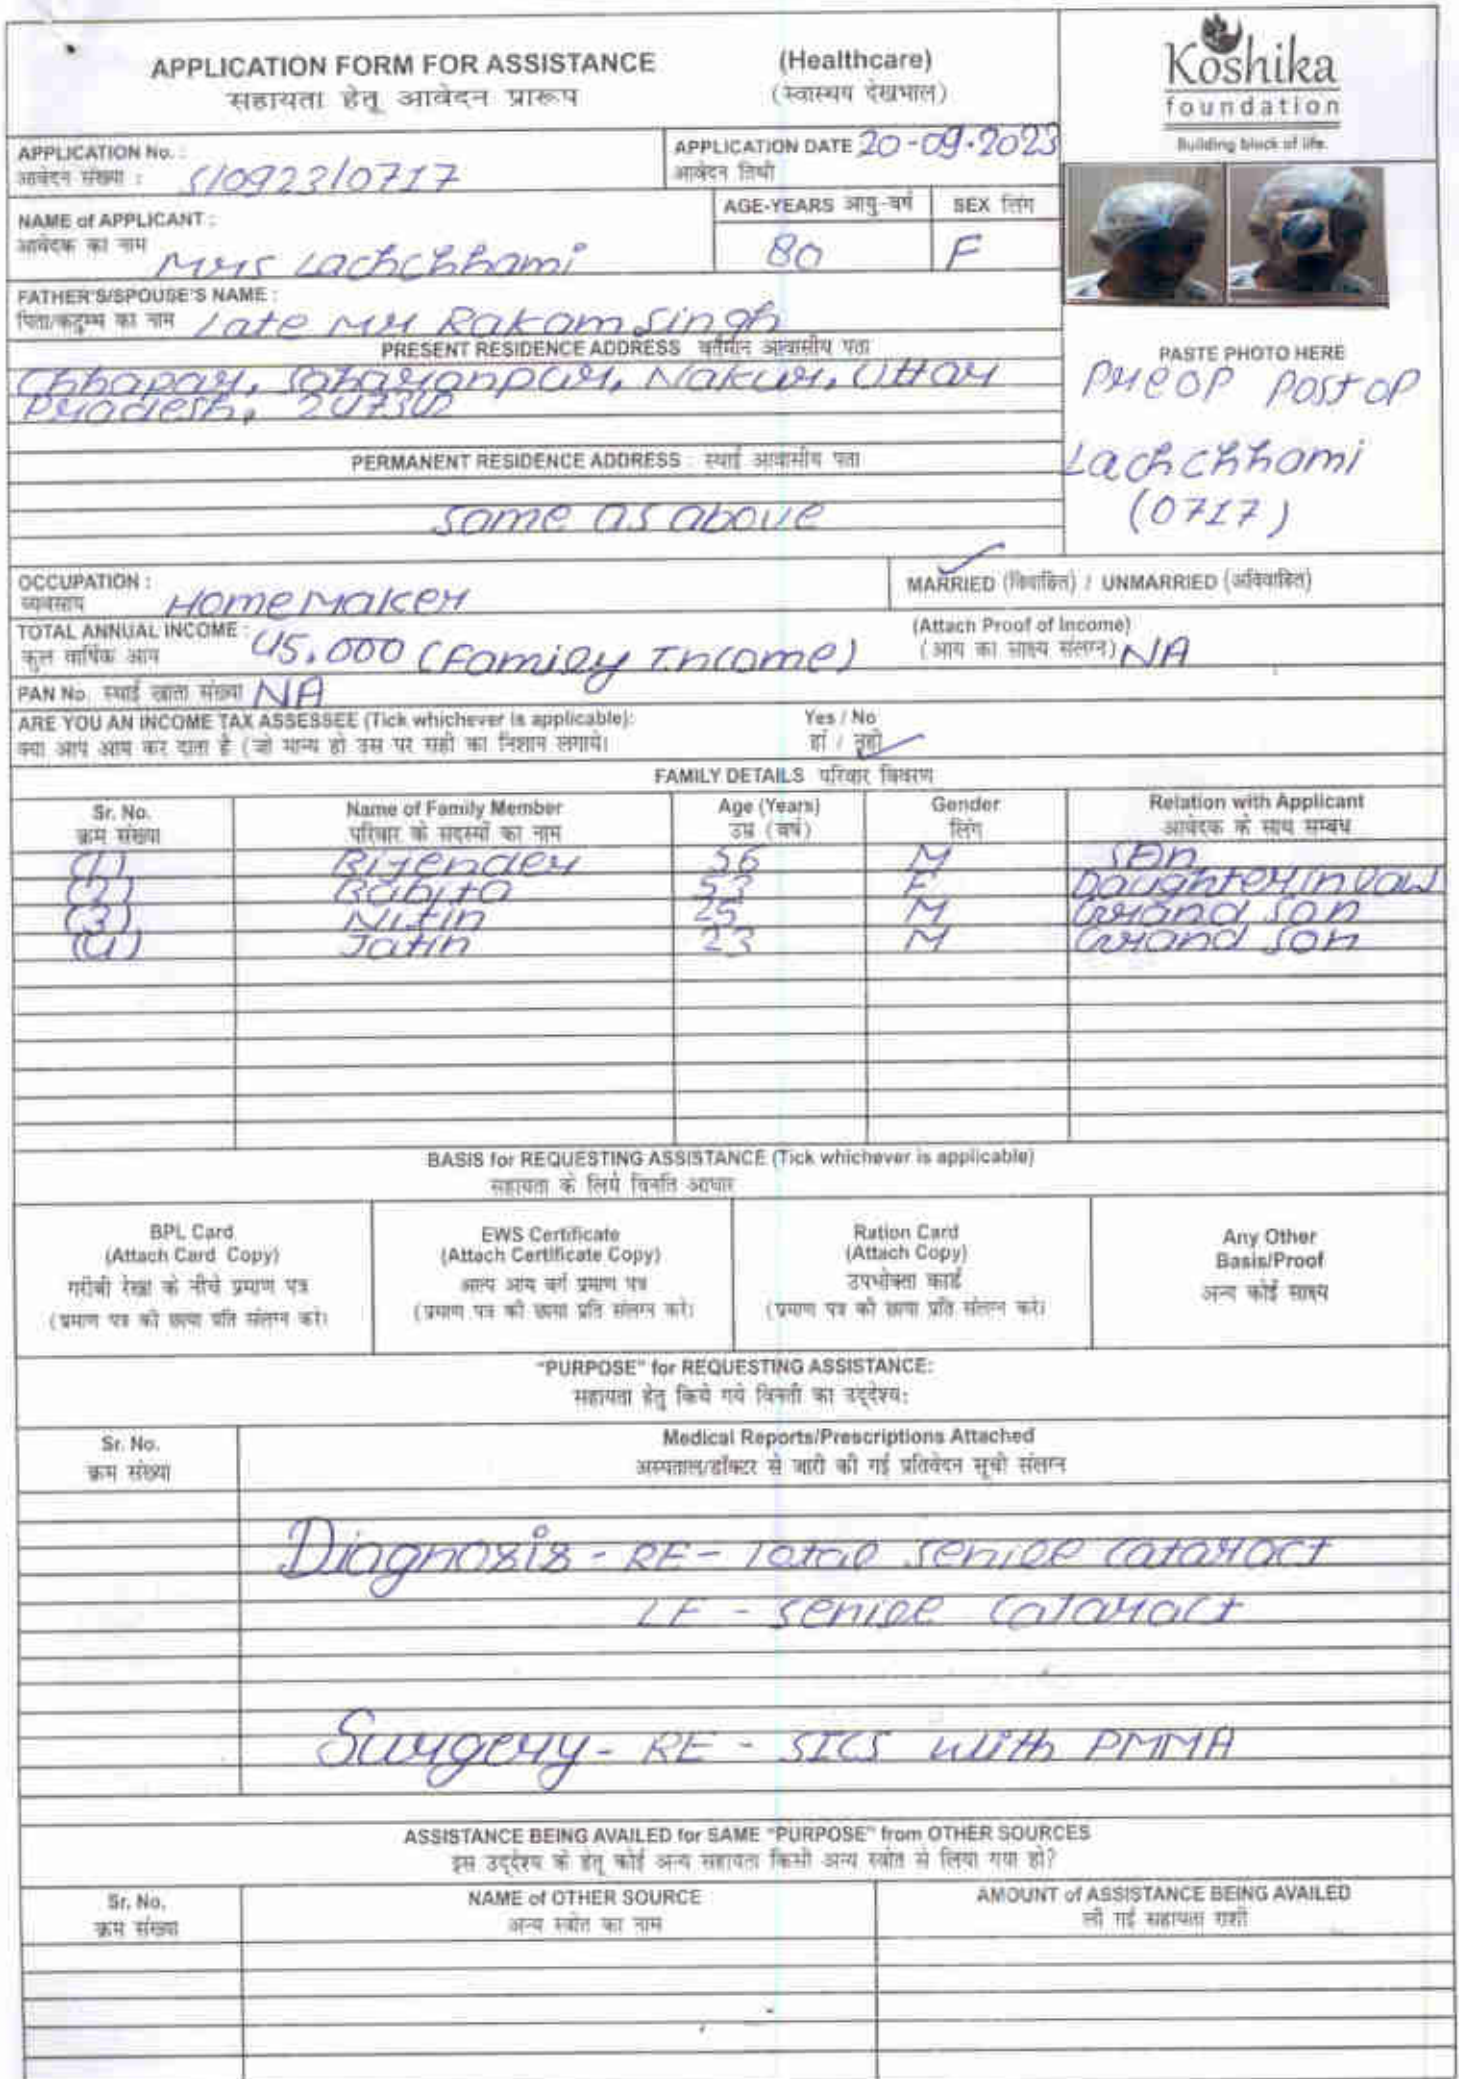 APPLICATION FORM FOR ASSISTANCE (Healthcare)
सहायता हेतू आवेदन प्रारूप (स्वास्थय देखभाल)
Koshika
foundation
Building block of life.
APPLICATION No. :
आवेदन संख्या : S/0923/0717
APPLICATION DATE 20-09-2023
आवेदन तिथी
NAME of APPLICANT :
आवेदक का नाम Mrs Lachchhami
AGE-YEARS आयु-वर्ष
80
SEX लिंग
F
FATHER'S/SPOUSE'S NAME :
पिता/कटुम्ब का नाम Late Mr Rakam Singh
PRESENT RESIDENCE ADDRESS वर्तमान आवासीय पता
Chhapar, Saharanpur, Nakur, Uttar
Pradesh, 247342
PERMANENT RESIDENCE ADDRESS : स्थाई आवासीय पता
same as above
PASTE PHOTO HERE
Preop Post op
Lachchhami
(0717)
OCCUPATION :
व्यवसाय Homemaker
MARRIED (विवाहित) / UNMARRIED (अविवाहित)
TOTAL ANNUAL INCOME :
कुल वार्षिक आय 45,000 (Family Income)
(Attach Proof of Income)
(आय का साक्ष्य संलग्न) NA
PAN No. स्थाई खाता संख्या NA
ARE YOU AN INCOME TAX ASSESSEE (Tick whichever is applicable): Yes / No
क्या आप आय कर दाता है (जो मान्य हो उस पर सही का निशान लगाये। हां / नही
FAMILY DETAILS परिवार विवरण
Sr. No. Name of Family Member Age (Years) Gender Relation with Applicant
क्रम संख्या परिवार के सदस्यों का नाम उम्र (वर्ष) लिंग आवेदक के साथ सम्बध
(1) Bijender 56 M Son
(2) Babita 53 F Daughter in law
(3) Nitin 25 M Grand Son
(4) Jatin 23 M Grand Son
BASIS for REQUESTING ASSISTANCE (Tick whichever is applicable)
सहायता के लिये विनति आधार
BPL Card
(Attach Card Copy)
गरीबी रेखा के नीचे प्रमाण पत्र
(प्रमाण पत्र की छाया प्रति संलग्न करे।
EWS Certificate
(Attach Certificate Copy)
अल्प आय वर्ग प्रमाण पत्र
(प्रमाण पत्र की छाया प्रति संलग्न करे।
Ration Card
(Attach Copy)
उपभोक्ता कार्ड
(प्रमाण पत्र की छाया प्रति संलग्न करे।
Any Other
Basis/Proof
अन्य कोई साक्ष्य
"PURPOSE" for REQUESTING ASSISTANCE:
सहायता हेतु किये गये विनती का उद्देश्य:
Sr. No. Medical Reports/Prescriptions Attached
क्रम संख्या अस्पताल/डॉक्टर से जारी की गई प्रतिवेदन सूची संलग्न
Diagnosis - RE - Total senile cataract
LE - senile cataract
Surgery - RE - SICS with PMMA
ASSISTANCE BEING AVAILED for SAME "PURPOSE" from OTHER SOURCES
इस उद्देश्य के हेतू कोई अन्य सहायता किसी अन्य स्त्रोत से लिया गया हो?
Sr. No. NAME of OTHER SOURCE AMOUNT of ASSISTANCE BEING AVAILED
क्रम संख्या अन्य स्त्रोत का नाम ली गई सहायता राशी